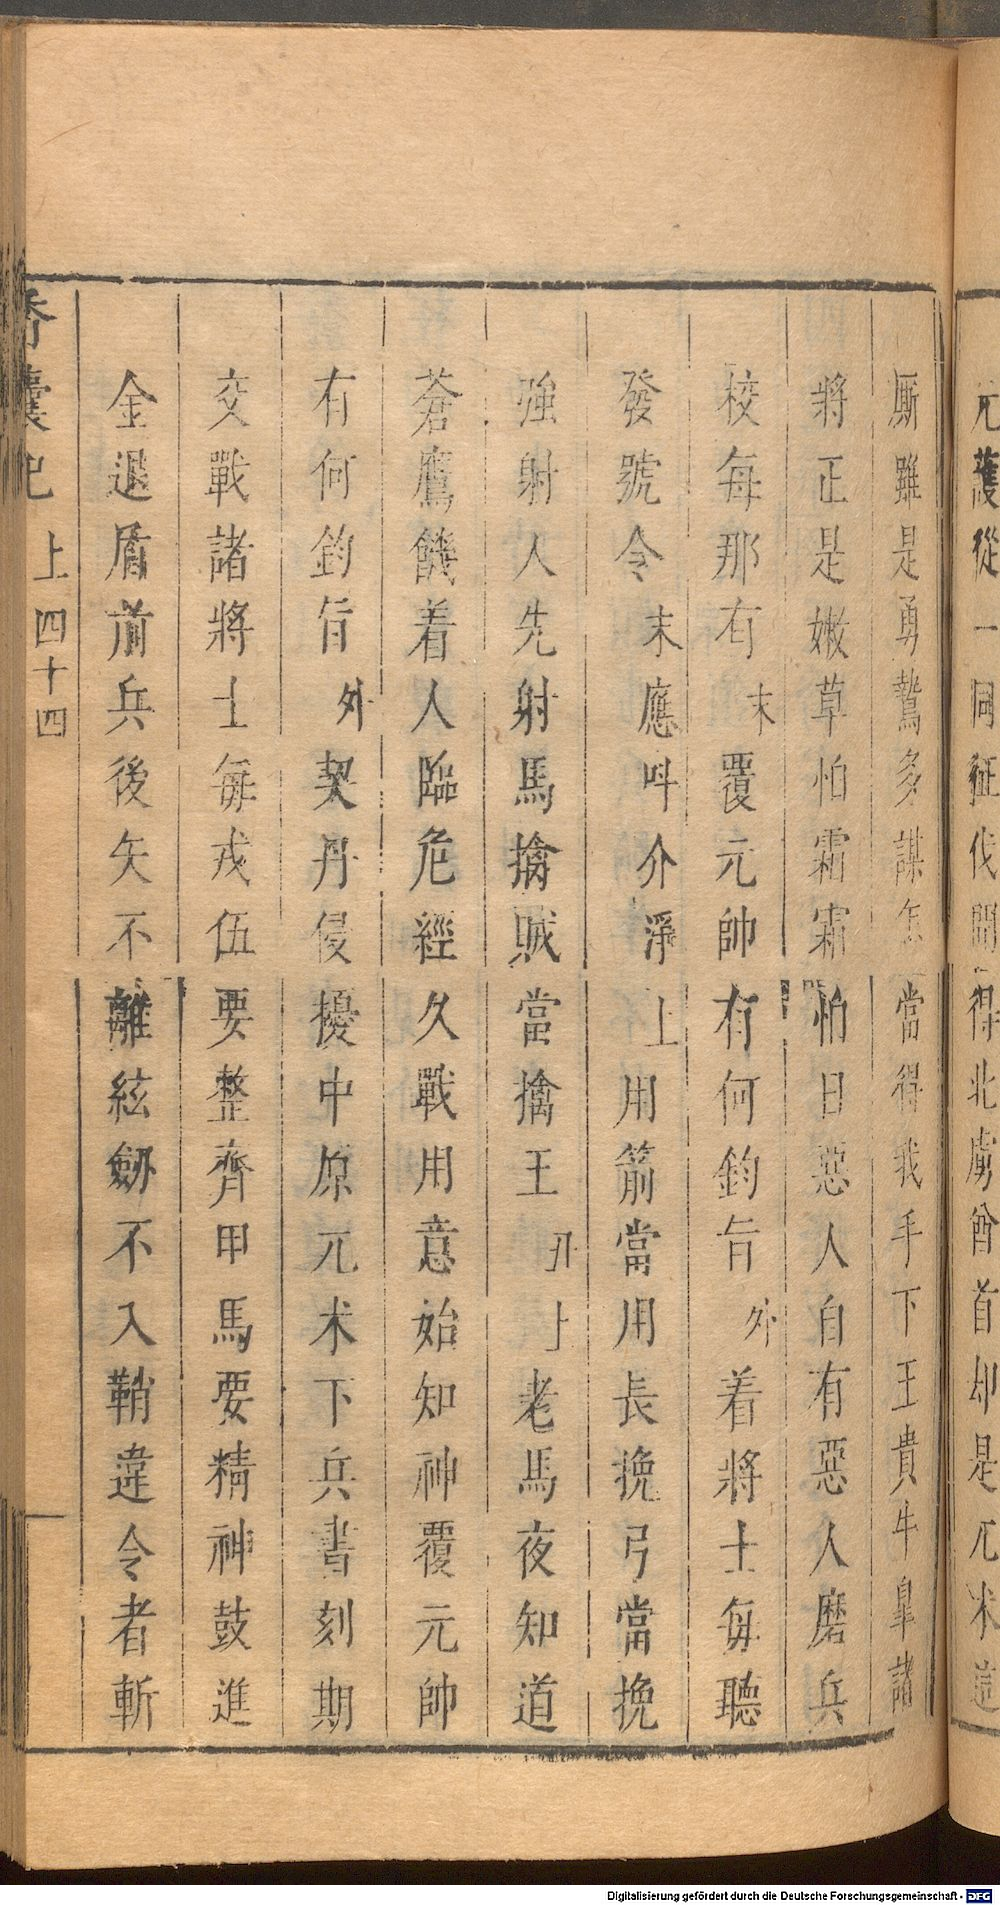 元護從一同征伐聞得北虜酋首却是兀朮這
厮雖是勇鷙多謀怎當得我手下王貴牛皐諸
將正是嫩草怕霜霜怕日惡人自有惡人磨兵
校每那有末覆元帥有何鈞旨外着將士每聽
發號令末應呌介淨上用箭當用長挽弓當挽
強射人先射馬擒賊當擒王丑上老馬夜知道
蒼鷹饑着人臨危經久戰用意始知神覆元帥
有何鈞旨外契丹侵擾中原兀朮下兵書刻期
交戰諸將士每戎伍要整齊甲馬要精神鼓進
金退盾前兵後矢不離絃劒不入鞘違令者斬
香囊記 上 四十四
Digitalisierung gefördert durch die Deutsche Forschungsgemeinschaft - DFG